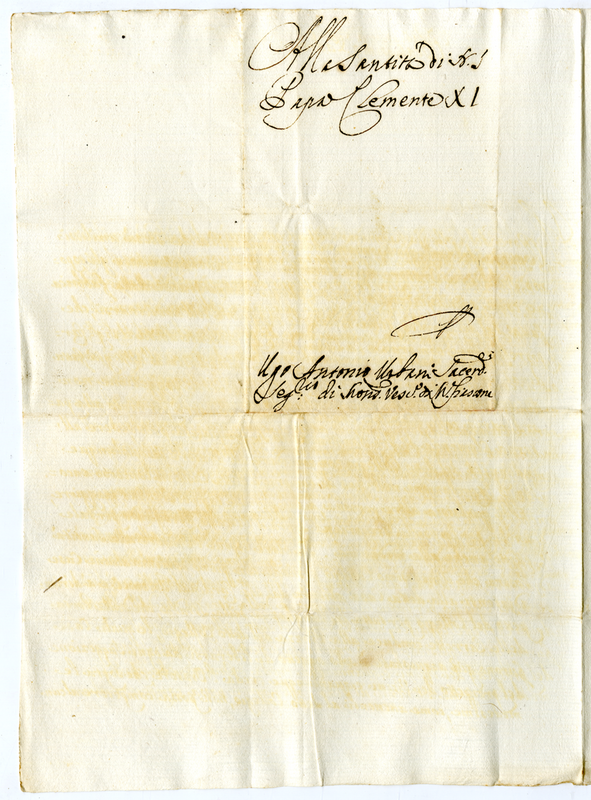 Alla Santità di N. S
Papa Clemente XI
Ugo Antonio Urbani Sacerd.
Seg.rio di Mons. Vesc.o di